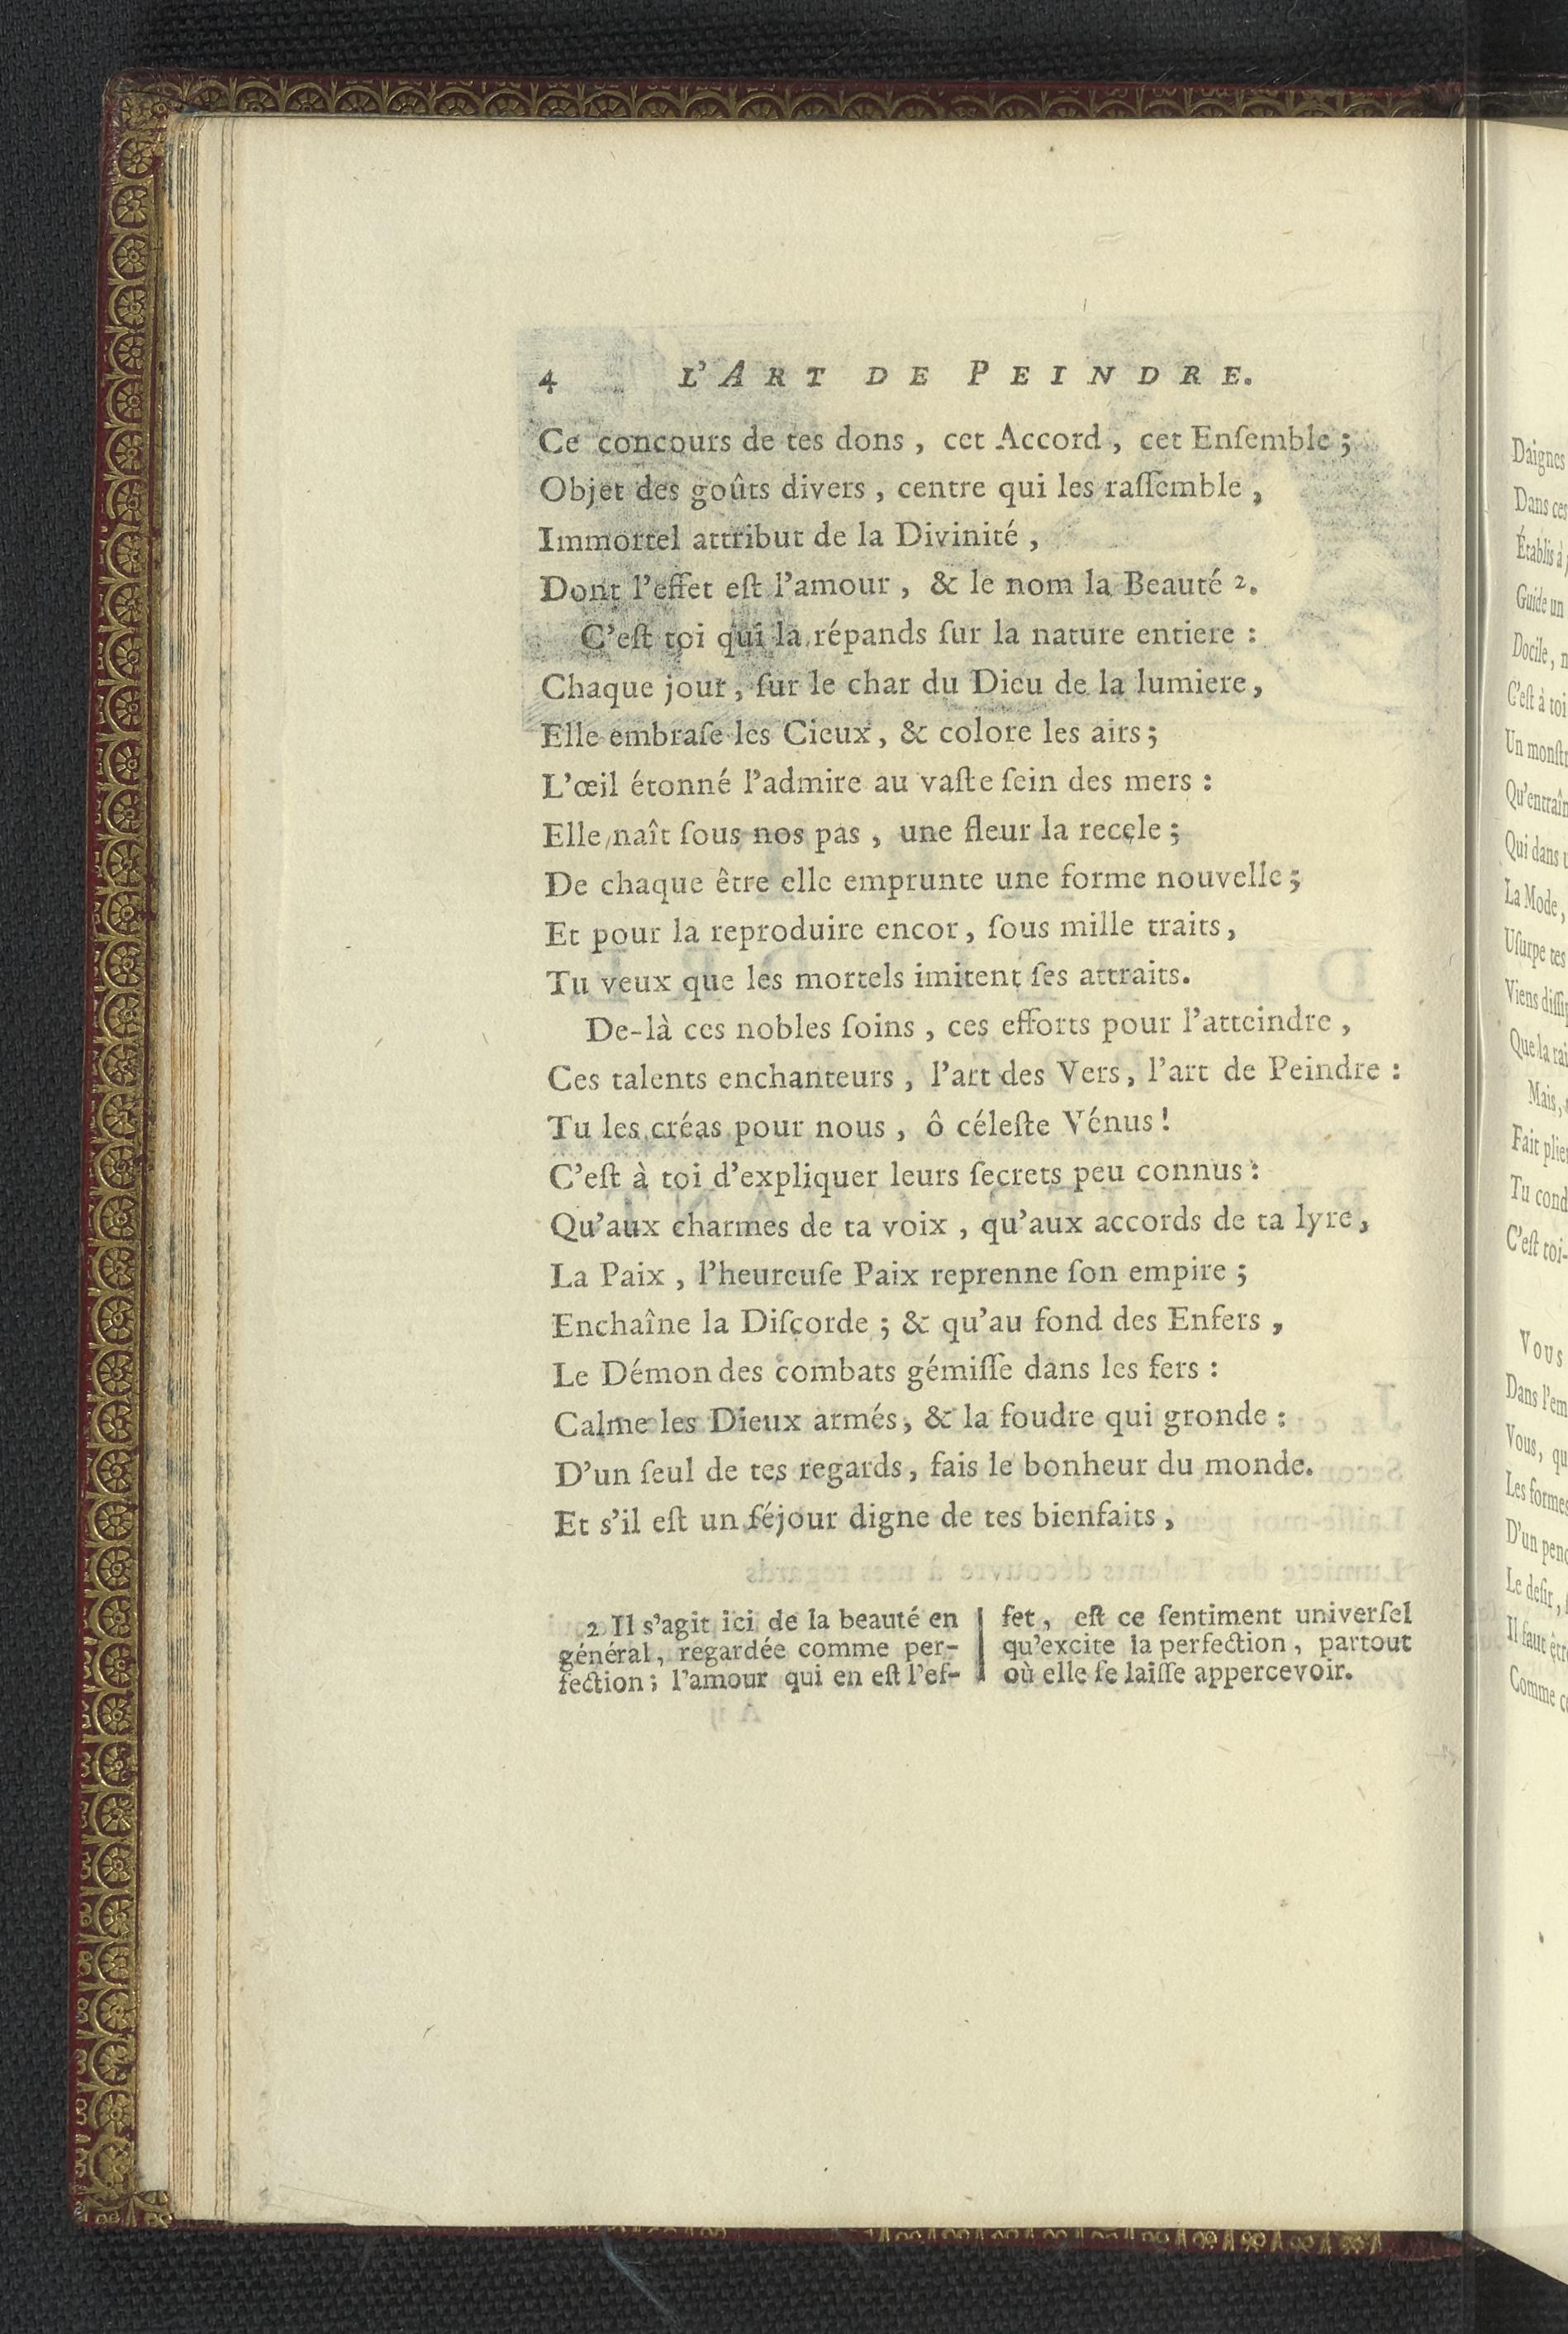 4 L'ART DE PEINDRE.
Ce concours de tes dons, cet Accord, cet Enſemble ;
Objet des goûts divers, centre qui les raſſemble,
Immortel attribut de la Divinité,
Dont l'effet eſt l'amour, & le nom la Beauté 2.
C'eſt toi qui la répands ſur la nature entiere :
Chaque jour, ſur le char du Dieu de la lumiere,
Elle embraſe les Cieux, & colore les airs ;
L'œil étonné l'admire au vaſte ſein des mers :
Elle naît ſous nos pas, une fleur la recele ;
De chaque être elle emprunte une forme nouvelle ;
Et pour la reproduire encor, ſous mille traits,
Tu veux que les mortels imitent ſes attraits.
De-là ces nobles ſoins, ces efforts pour l'atteindre,
Ces talents enchanteurs, l'art des Vers, l'art de Peindre :
Tu les créas pour nous, ô céleſte Vénus !
C'eſt à toi d'expliquer leurs ſecrets peu connus :
Qu'aux charmes de ta voix, qu'aux accords de ta lyre,
La Paix, l'heureuſe Paix reprenne ſon empire ;
Enchaîne la Diſcorde ; & qu'au fond des Enfers,
Le Démon des combats gémiſſe dans les fers :
Calme les Dieux armés, & la foudre qui gronde :
D'un ſeul de tes regards, fais le bonheur du monde.
Et s'il eſt un ſéjour digne de tes bienfaits,
2 Il s'agit ici de la beauté en
général, regardée comme per-
fection ; l'amour qui en eſt l'ef-
fet, eſt ce ſentiment univerſel
qu'excite la perfection, partout
où elle ſe laiſſe appercevoir.
Daignes
Dans ces
Établis à
Guide un
Docile,
C'eſt à toi
Un monſtr
Qu'entraîn
Qui dans
La Mode,
Uſurpe tes
Viens diſſip
Que la rai
Mais,
Fait plier
Tu cond
C'eſt toi-
Vous
Dans l'em
Vous, qu
Les formes
D'un penc
Le deſir,
Il faut être
Comme ce